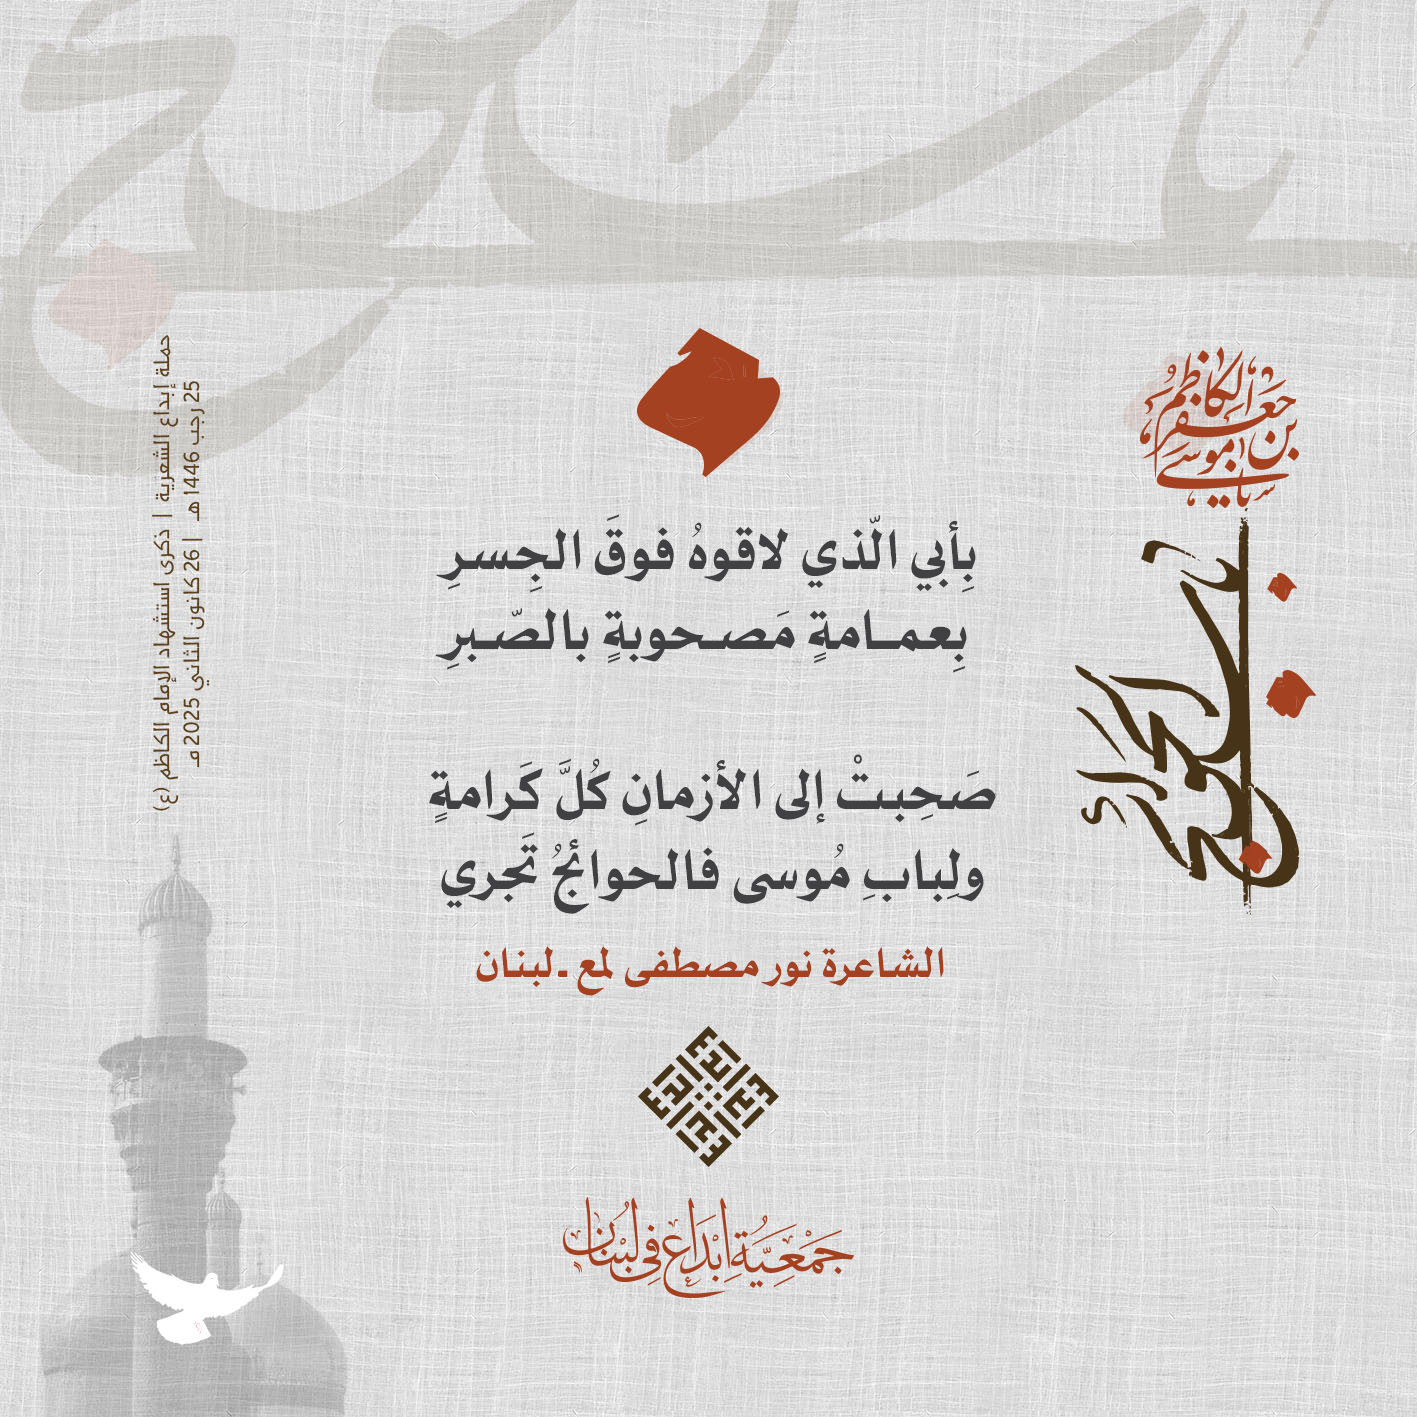 بِأبي الّذي لاقوهُ فوقَ الجِسرِ
بِعمـــامةٍ مَصـحوبةٍ بالصّـبرِ
صَحِبتْ إلى الأزمانِ كُلَّ كَرامةٍ
ولِبابِ مُوسى فالحوائجُ تَجري
الشاعرة نور مصطفى لمع ـ لبنان
جَمْعِيَّةُ إِبْدَاع فِي لُبْنَان
يا موسى
بن جعفر
الكاظم
باب الحوائج
حملة إبداع الشعرية | ذكرى استشهاد الإمام الكاظم (ع)
25 رجب 1446 هـ | 26 كانون الثاني 2025 مـ